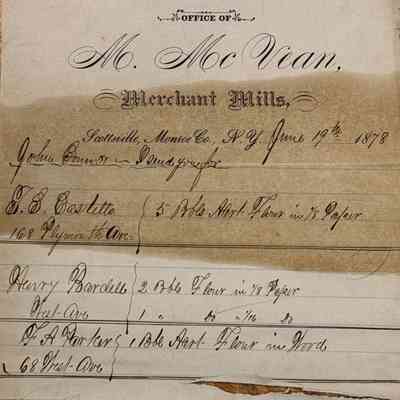 OFFICE OF
M. McVean,
Merchant Mills,
Scottsville, Monroe Co., N.Y. June 19th 1878
John Connor Send you for
E. E. Costello 5 Bbls Abrt. Flour in 1/8 Paper
168 Plymouth Ave.
Henry Bardell 2 Bbls Flour in 1/8 Paper
West Ave 1 " do " 1/16 do
F. A. Horker 1 Bbls Abrt. Flour in Wood
68 West Ave